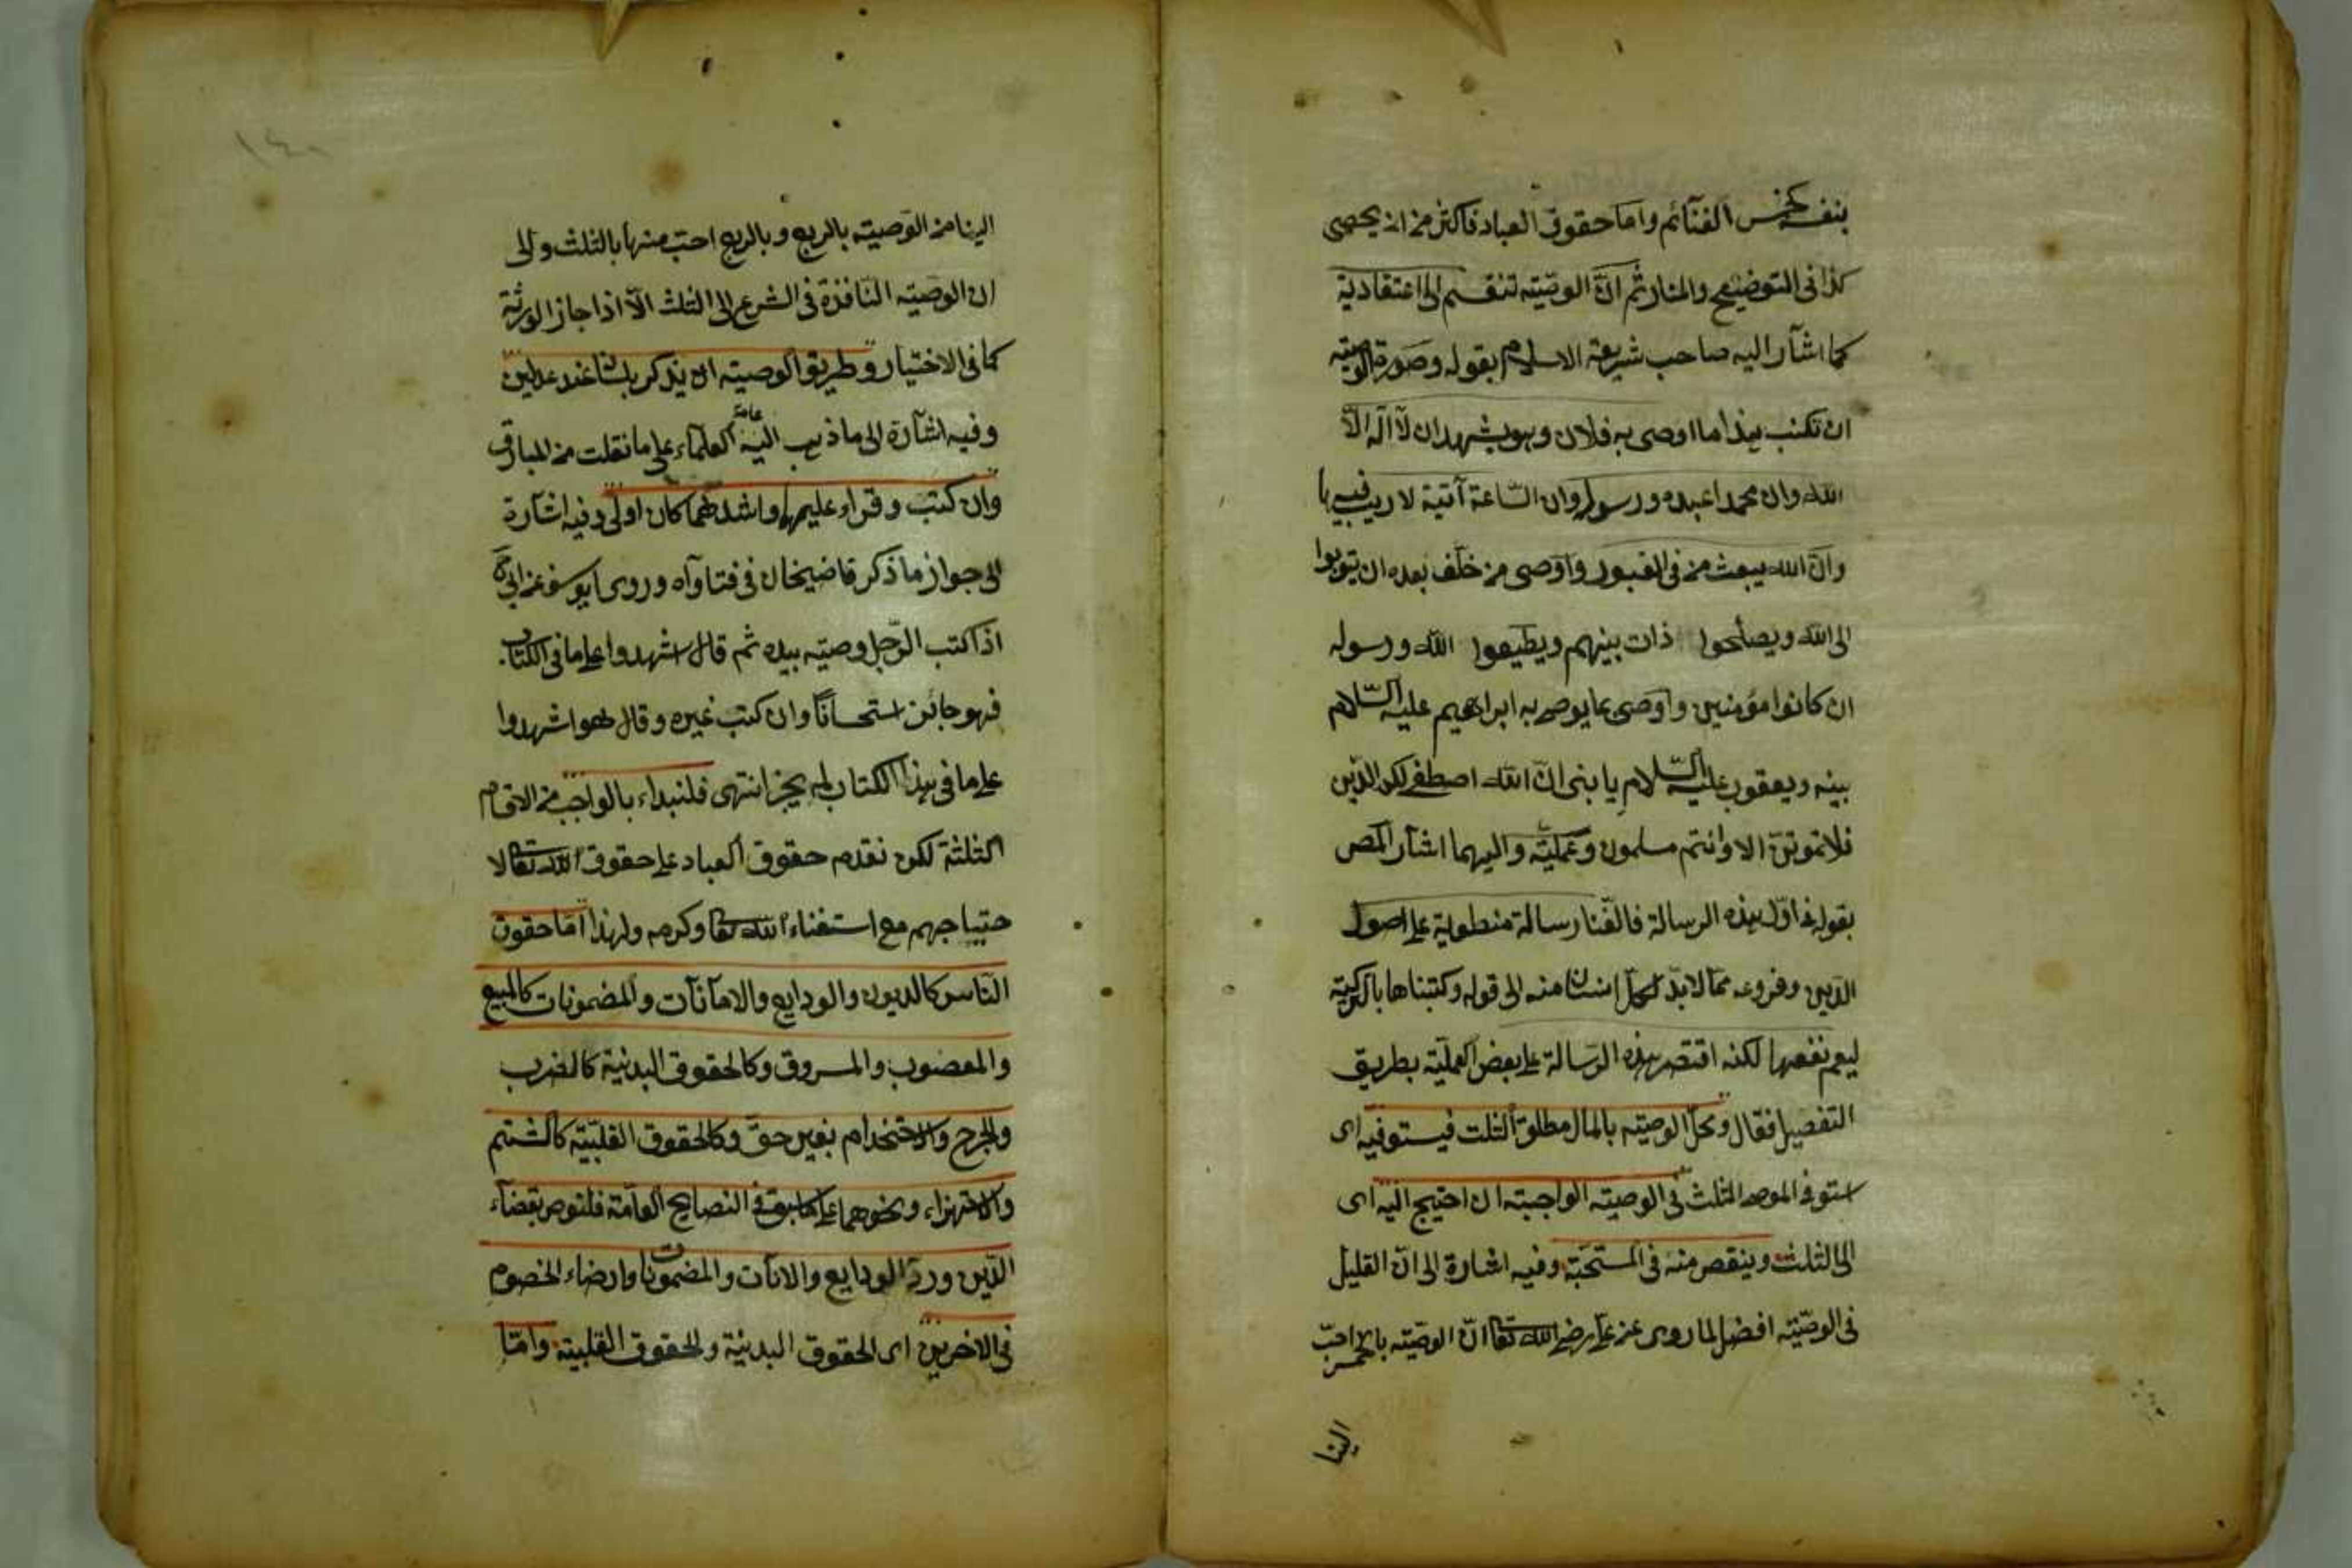 بنفسه كخمس الغنآئم وامّا حقوق العباد فاكثر من ان يحصى
كذا فى التوضيح والمنار ثم انّ الوصيّة تنقسم الى اعتقادية
كما اشآر اليه صاحب شريعة الاسلام بقوله وصورة الوصيته
ان تكتب هذا ما اوصى به فلان وهو يشهد ان لآ اله الّا
الله وان محمدا عبده ورسوله وان السّاعة آتية لا ريب فيها
وانّ الله يبعث من فى القبور واوصى من خلّف بعده ان يتوبوا
الى الله ويصلحوا ذات بينهم ويطيعوا الله ورسوله
ان كانوا مؤمنين واوصى بما يوصى به ابراهيم عليه السّلام
بنيه ويعقوب عليه السّلام يا بنى انّ الله اصطفى لكم الدّين
فلا تموتنّ الا وانتم مسلمون وعمليّة واليهما اشآر المص
بقوله فى اوّل هذه الرسالة فالّفنا رسالة منطوية على اصول
الدّين وفروعه ممّا لا بدّ لكلّ انسان منه الى قوله وكتبناها بالتركية
ليعم نفعها لكنه اقتصر هذه الرّسالة على بعض العمليّة بطريق
التفصيل فقال ومحلّ الوصيّة بالمال مطلق الثلث فيستوفيه اى
استوفى الموصى الثلث فى الوصيته الواجبته ان احتيج اليه اى
الى الثلث وينقص منه فى المستحبّة وفيه اشارة الى انّ القليل
فى الوصيّته افضل لما روى عن على رضى الله تعا انّ الوصيّته بالخمس احبّ
الينا
١٤٠
الينا من الوصيته بالربع وبالربع احبّ منها بالثلث والى
ان الوصيته النّافذة فى الشرع الى الثلث الّا اذا جاز الورثة
كما فى الاختيار وطريق الوصيته ان يذكر بلسانه عند عدلين
وفيه اشآرة الى ما ذهب اليه عامة العلمآء على ما نقلت من المبارق
وان كتب وقراء عليهما واشهدهما كان اولى وفيه اشآرة
الى جواز ما ذكر قاضيخان فى فتاواه وروى ابو يوسف عن ابى ح
اذا كتب الرّجل وصيته بيده ثم قال اشهدوا على ما فى الكتاب
فهو جائز استحساناً وان كتب غيره وقال هو اشهدوا
على ما فى هذا الكتاب لم يجز انتهى فلنبداء بالواجب من الاقسام
الثلثة لكن نقدم حقوق العباد على حقوق الله تعالى لا
حتياجهم مع استغناء الله تعا وكرمه ولهذا امّا حقوق
النّاس كالديون والودايع والامآنآت والمضمونات كالمبيع
والمغصوب والمسروق وكالحقوق البدنية كالضرب
والجرح والاستخدام بغير حقّ وكالحقوق القلبيّة كالشتم
والاستهزاء ونحوهما على ما سبق فى النصايح العامّة فلنوص بقضآء
الدّين وردّ الودايع والانات والمضمونات وارضاء الخصوم
فى الاخرين اى الحقوق البدنية والحقوق القلبية وامّا